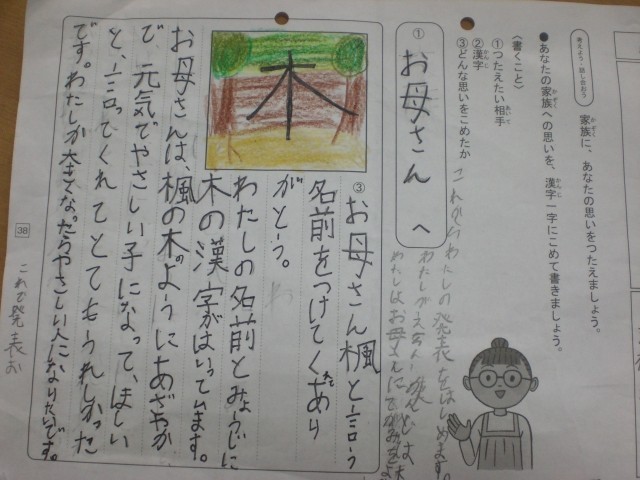 考えよう・話しあおう
家族に、あなたの思いをつたえましょう。
かぞく
●あなたの家族への思いを、漢字一字にこめて書きましょう。
かぞく
かんじ
〈書くこと〉
①つたえたい相手
あいて
②漢字
かんじ
③どんな思いをこめたか
①
お母さんへ
これからわたしの発表をはじめます。
わたしは お母さんに
木
③
お母さん楓と言う
名前をつけてくれてあり
がとう。
わたしの名前とみょうじに
木の漢字がはいっています。
お母さんは、楓の木のようにあざやか
で、元気でやさしい子になって、ほしい
と、言ってくれてとてもうれしかった
です。わたしが大きくな。たらやさしい人になりたいです。
38
これで発表お